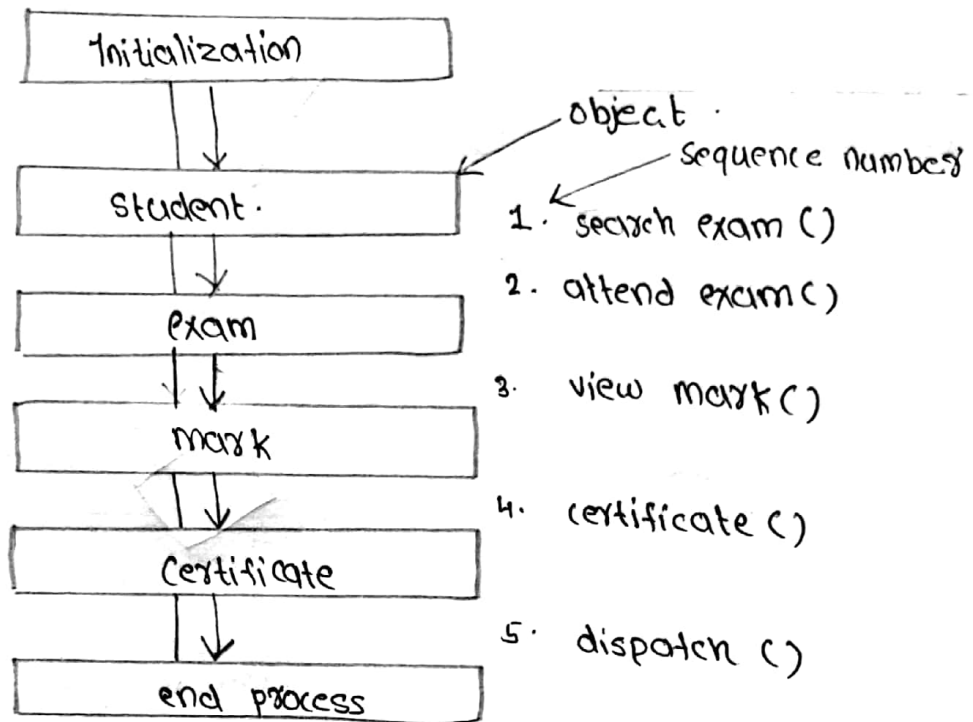 Initialization
object.
sequence number
student.
1. search exam ()
2. attend exam()
exam
3. view mark()
mark
4. certificate ()
certificate
5. dispatch ()
end process